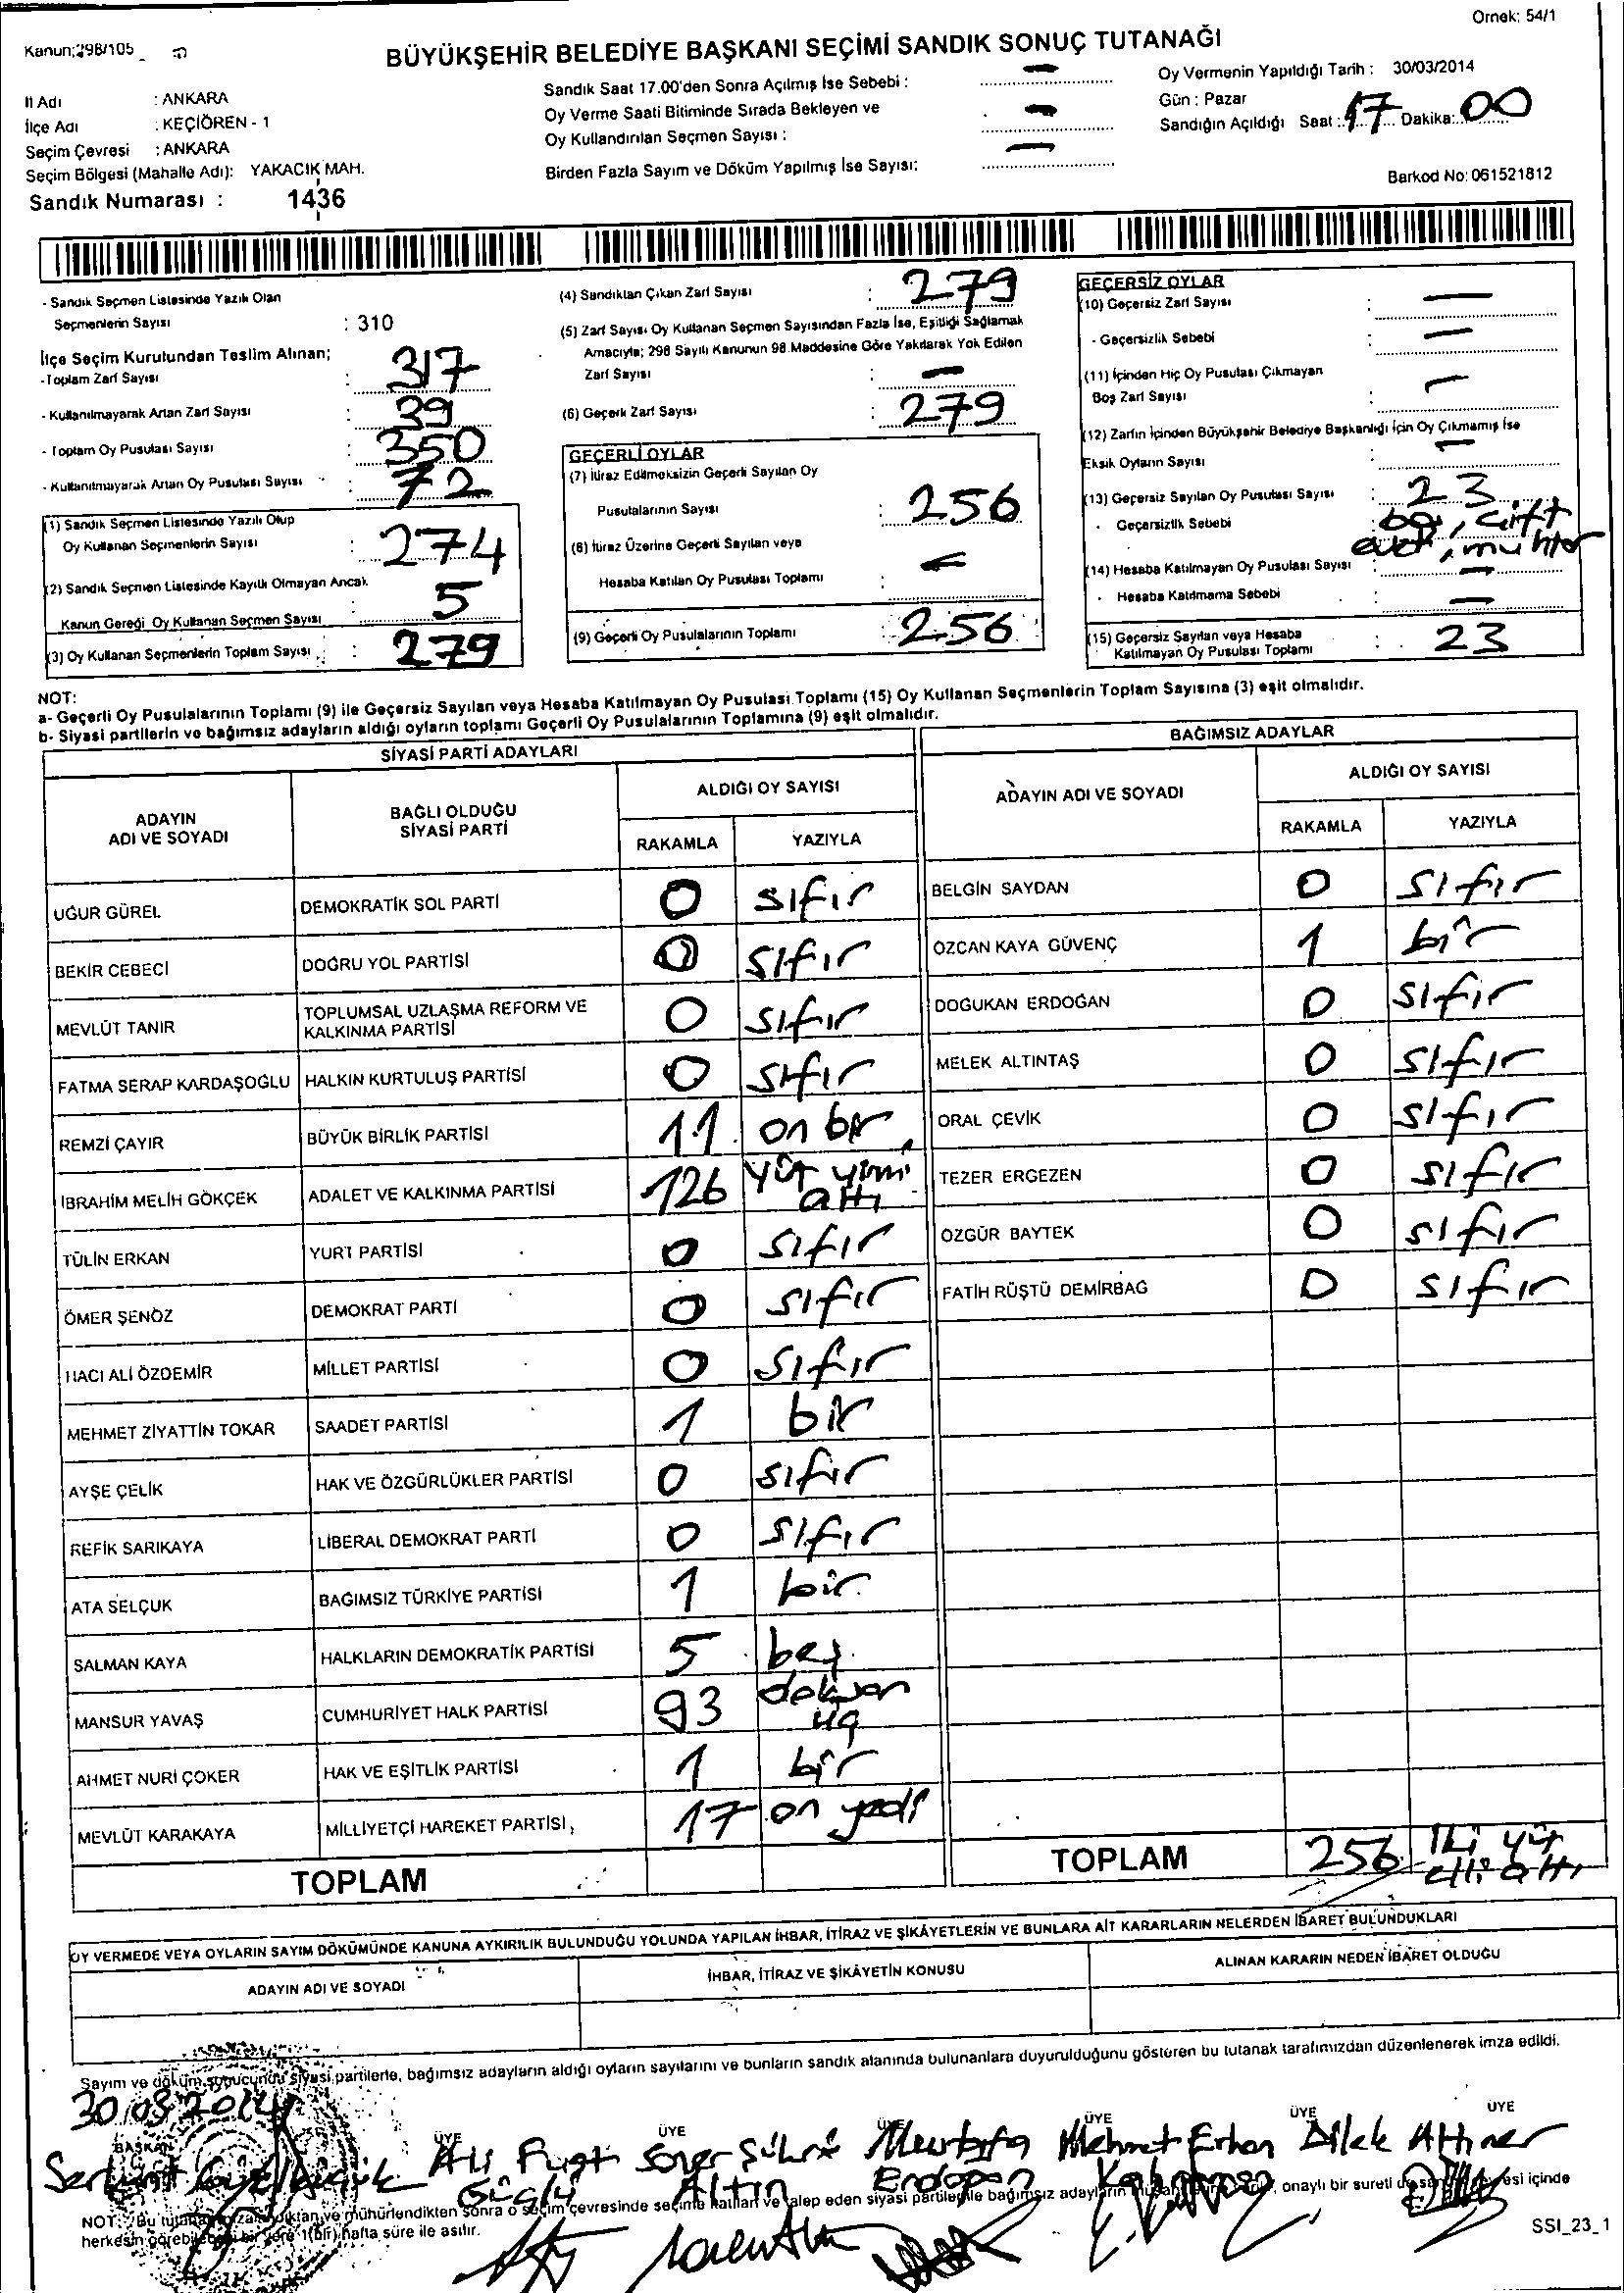 Örnek: 54/1
Kanun:298/105
BÜYÜKŞEHİR BELEDİYE BAŞKANI SEÇİMİ SANDIK SONUÇ TUTANAĞI
İl Adı : ANKARA
İlçe Adı : KEÇİÖREN - 1
Seçim Çevresi : ANKARA
Seçim Bölgesi (Mahalle Adı): YAKACIK MAH.
Sandık Numarası : 1436
Sandık Saat 17.00'den Sonra Açılmış İse Sebebi : —
Oy Verme Saati Bitiminde Sırada Bekleyen ve
Oy Kullandırılan Seçmen Sayısı : —
Birden Fazla Sayım ve Döküm Yapılmış İse Sayısı: —
Oy Vermenin Yapıldığı Tarih : 30/03/2014
Gün : Pazar
Sandığın Açıldığı Saat : 17 Dakika: 00
Barkod No: 061521812
- Sandık Seçmen Listesinde Yazılı Olan
Seçmenlerin Sayısı : 310
İlçe Seçim Kurulundan Teslim Alınan;
- Toplam Zarf Sayısı : 317
- Kullanılmayarak Artan Zarf Sayısı : 39
- Toplam Oy Pusulası Sayısı : 350
- Kullanılmayarak Artan Oy Pusulası Sayısı : 72
(1) Sandık Seçmen Listesinde Yazılı Olup
Oy Kullanan Seçmenlerin Sayısı : 274
(2) Sandık Seçmen Listesinde Kayıtlı Olmayan Ancak
Kanun Gereği Oy Kullanan Seçmen Sayısı : 5
(3) Oy Kullanan Seçmenlerin Toplam Sayısı : 279
(4) Sandıktan Çıkan Zarf Sayısı : 279
(5) Zarf Sayısı Oy Kullanan Seçmen Sayısından Fazla İse, Eşitliği Sağlamak
Amacıyla; 298 Sayılı Kanunun 98.Maddesine Göre Yakılarak Yok Edilen
Zarf Sayısı : —
(6) Geçerli Zarf Sayısı : 279
GEÇERLİ OYLAR
(7) İtiraz Edilmeksizin Geçerli Sayılan Oy
Pusulalarının Sayısı : 256
(8) İtiraz Üzerine Geçerli Sayılan veya
Hesaba Katılan Oy Pusulası Toplamı : —
(9) Geçerli Oy Pusulalarının Toplamı : 256
GEÇERSİZ OYLAR
(10) Geçersiz Zarf Sayısı : —
- Geçersizlik Sebebi : —
(11) İçinden Hiç Oy Pusulası Çıkmayan
Boş Zarf Sayısı : —
(12) Zarfın İçinden Büyükşehir Belediye Başkanlığı İçin Oy Çıkmamış İse
Eksik Oyların Sayısı : —
(13) Geçersiz Sayılan Oy Pusulası Sayısı : 23
- Geçersizlik Sebebi : boş, çift
evet, muhtar
(14) Hesaba Katılmayan Oy Pusulası Sayısı : —
- Hesaba Katılmama Sebebi : —
(15) Geçersiz Sayılan veya Hesaba
Katılmayan Oy Pusulası Toplamı : 23
NOT:
a- Geçerli Oy Pusulalarının Toplamı (9) ile Geçersiz Sayılan veya Hesaba Katılmayan Oy Pusulası Toplamı (15) Oy Kullanan Seçmenlerin Toplam Sayısına (3) eşit olmalıdır.
b- Siyasi partilerin ve bağımsız adayların aldığı oyların toplamı Geçerli Oy Pusulalarının Toplamına (9) eşit olmalıdır.
SİYASİ PARTİ ADAYLARI
ADAYIN ADI VE SOYADI BAĞLI OLDUĞU SİYASİ PARTİ ALDIĞI OY SAYISI
RAKAMLA YAZIYLA
UĞUR GÜREL DEMOKRATİK SOL PARTİ 0 sıfır
BEKİR CEBECİ DOĞRU YOL PARTİSİ 0 sıfır
MEVLÜT TANIR TOPLUMSAL UZLAŞMA REFORM VE KALKINMA PARTİSİ 0 sıfır
FATMA SERAP KARDAŞOĞLU HALKIN KURTULUŞ PARTİSİ 0 sıfır
REMZİ ÇAYIR BÜYÜK BİRLİK PARTİSİ 11 on bir
İBRAHİM MELİH GÖKÇEK ADALET VE KALKINMA PARTİSİ 126 yüz yirmi altı
TÜLİN ERKAN YURT PARTİSİ 0 sıfır
ÖMER ŞENÖZ DEMOKRAT PARTİ 0 sıfır
HACI ALİ ÖZDEMİR MİLLET PARTİSİ 0 sıfır
MEHMET ZİYATTİN TOKAR SAADET PARTİSİ 1 bir
AYŞE ÇELİK HAK VE ÖZGÜRLÜKLER PARTİSİ 0 sıfır
REFİK SARIKAYA LİBERAL DEMOKRAT PARTİ 0 sıfır
ATA SELÇUK BAĞIMSIZ TÜRKİYE PARTİSİ 1 bir
SALMAN KAYA HALKLARIN DEMOKRATİK PARTİSİ 5 beş
MANSUR YAVAŞ CUMHURİYET HALK PARTİSİ 93 doksan üç
AHMET NURİ ÇOKER HAK VE EŞİTLİK PARTİSİ 1 bir
MEVLÜT KARAKAYA MİLLİYETÇİ HAREKET PARTİSİ 17 on yedi
TOPLAM
BAĞIMSIZ ADAYLAR
ADAYIN ADI VE SOYADI ALDIĞI OY SAYISI
RAKAMLA YAZIYLA
BELGİN SAYDAN 0 sıfır
ÖZCAN KAYA GÜVENÇ 1 bir
DOĞUKAN ERDOĞAN 0 sıfır
MELEK ALTINTAŞ 0 sıfır
ORAL ÇEVİK 0 sıfır
TEZER ERGEZEN 0 sıfır
ÖZGÜR BAYTEK 0 sıfır
FATİH RÜŞTÜ DEMİRBAĞ 0 sıfır
TOPLAM 256 iki yüz elli altı
OY VERMEDE VEYA OYLARIN SAYIM DÖKÜMÜNDE KANUNA AYKIRILIK BULUNDUĞU YOLUNDA YAPILAN İHBAR, İTİRAZ VE ŞİKÂYETLERİN VE BUNLARA AİT KARARLARIN NELERDEN İBARET BULUNDUKLARI
ADAYIN ADI VE SOYADI İHBAR, İTİRAZ VE ŞİKÂYETİN KONUSU ALINAN KARARIN NEDEN İBARET OLDUĞU
Sayım ve döküm sonucunda siyasi partilerle, bağımsız adayların aldığı oyların sayılarını ve bunların sandık alanında bulunanlara duyurulduğunu gösteren bu tutanak tarafımızdan düzenlenerek imza edildi.
30.03.2014
BAŞKAN ÜYE ÜYE ÜYE ÜYE ÜYE ÜYE
Ali Fuat Güçlü
Soner Şükrü Altın
Mustafa Erdoğan
Mehmet Erhan
Dilek Altıner
NOT: Bu tutanak imzalandıktan ve mühürlendikten sonra o seçim çevresinde seçime katılan ve talep eden siyasi partiler ile bağımsız adayların onaylı bir sureti de içinde
herkesin görebileceği bir yere 1(bir) hafta süre ile asılır.
SSI_23_1